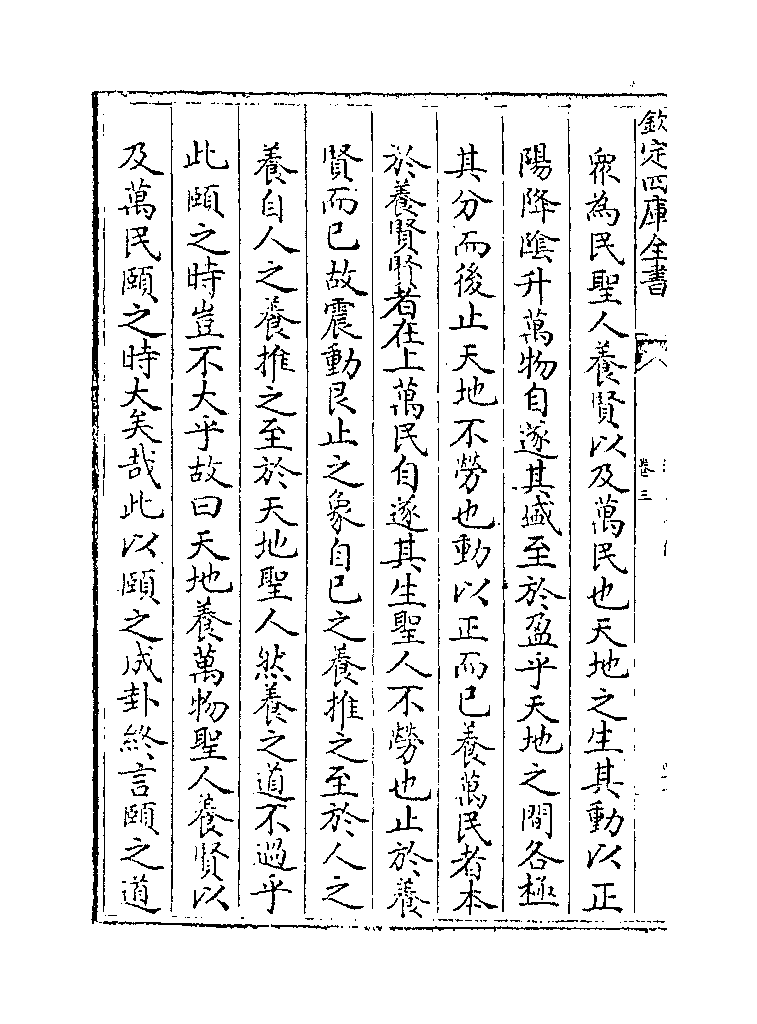 欽定四庫全書
卷三
衆為民聖人養賢以及萬民也天地之生其動以正
陽降陰升萬物自遂其盛至於盈乎天地之間各極
其分而後止天地不勞也動以正而已養萬民者本
於養賢賢者在上萬民自遂其生聖人不勞也止於養
賢而已故震動艮止之象自已之養推之至於人之
養自人之養推之至於天地聖人然養之道不過乎
此頤之時豈不大乎故曰天地養萬物聖人養賢以
及萬民頤之時大矣哉此以頤之成卦終言頤之道